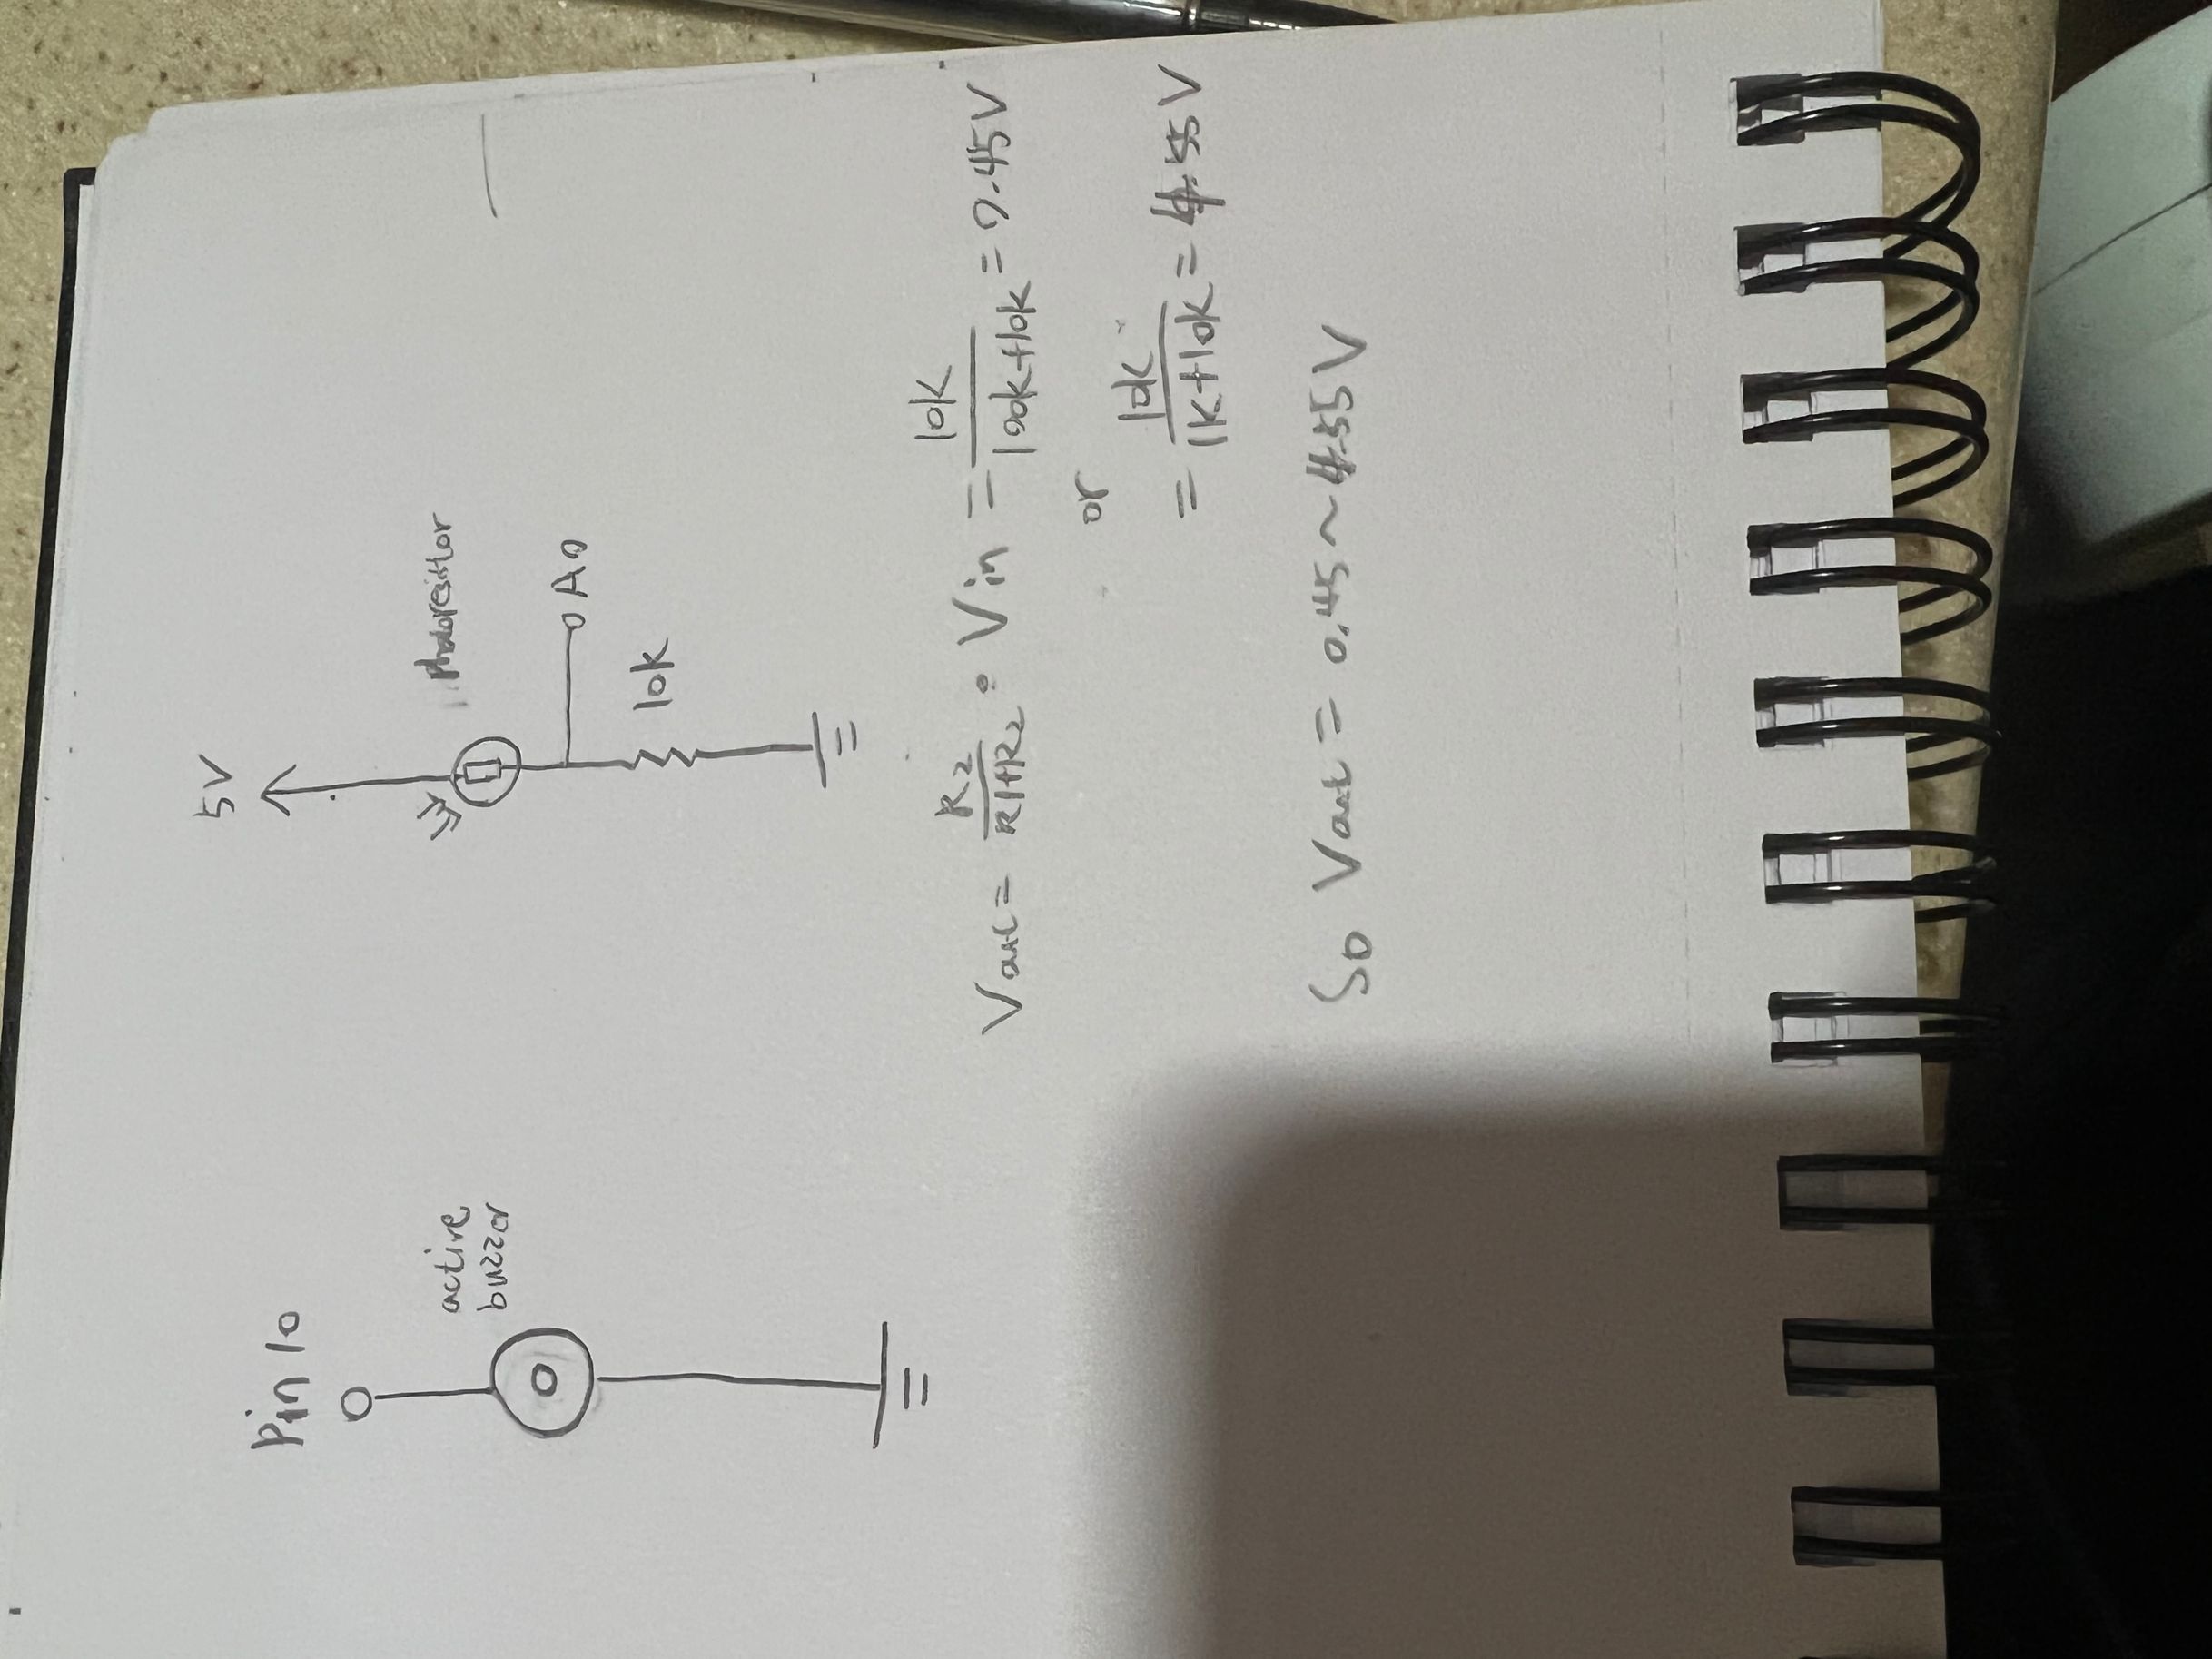 5V
Pin 10
active
buzzer
photoresistor
A0
10k
Vout = R2 / R1+R2 • Vin = 10k / 100k+10k = 0.45V
or
= 10k / 1k+10k = 4.55V
So Vout = 0.45 ~ 4.55V